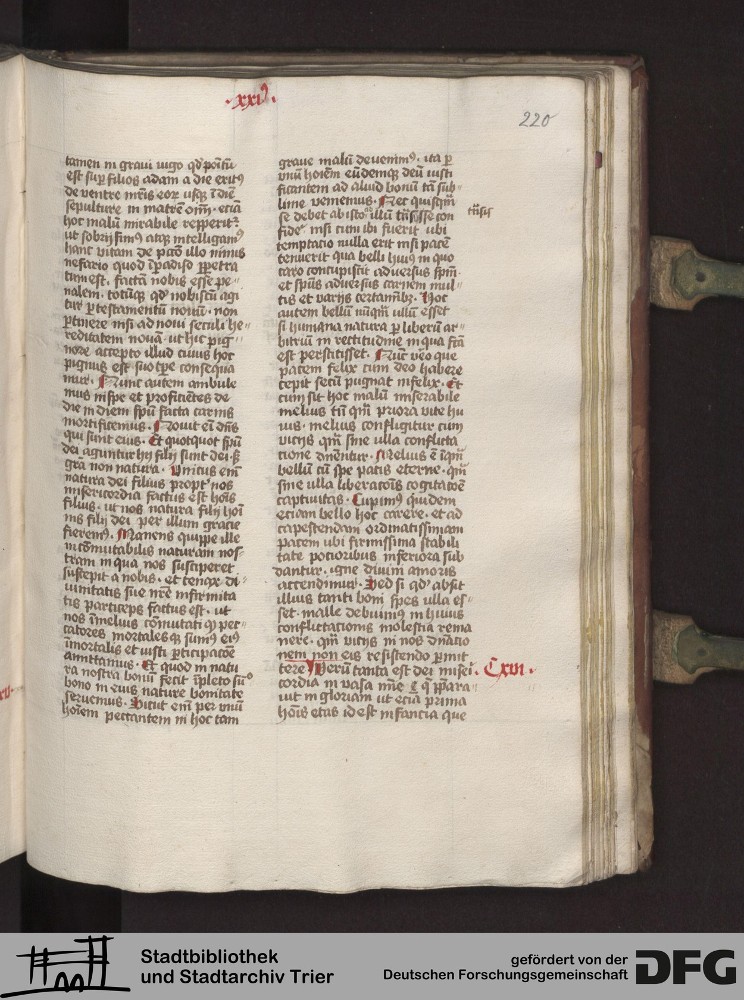 ·xxi⁹·
220
tamen in gravi iugo qd' positū
est sup filios adam a die exitꝰ
de ventre mr̄is eor usqꝫ ī diē
sepulture in matrē oīm· etiā
hoc malū mirabile repperit·
ut sobrij simꝰ atqꝫ intelligamꝰ
hanc vitam de pctō illo nimis
nefario quod ī padiso ppetra
tum est· factā nobis esse pe⸗
nalem· totūqꝫ qd' nobiscū agi
tur p testamentū novū· non
ptinere nisi ad novi seculi he⸗
reditatem novā· ut hic pig⸗
nore accepto illud cuius hoc
pignus est suo tpe consequa
mur· Nunc autem ambule
mus in spe et proficiētes de
die in diem spū facta carnis
mortificemus· Novit eī dn̄s
qui sunt eius· Et quotquot spū
dei aguntur hij filij sunt dei· sꝫ
gr̄a non natura· Unicus eīm
natura dei filius propt' nos
misericordia factus est hoīs
filius· ut nos natura filij hoī
nis filij dei per illum gracie
fieremꝰ· Manens quippe ille
incōmutabilis naturam nos⸗
tram in qua nos susciperet
suscepit a nobis· et tenax di⸗
vinitatis sue nr̄e infirmita
tis particeps factus est· ut
nos in melius cōmutati qꝫ pec⸗
catores mortalesqꝫ sumꝰ eiꝰ
īmortalis et iusti pticipacōe
amittamus· Et quod in natu
ra nostra bonū fecit īpleto sū°
bono in eius nature bonitate
servemus· Sicut em̄ per unū
hoīem peccantem in hoc tam
grave malū devenimꝰ· ita p
unū hoīem eūdemqꝫ deū iusti
ficantem ad aliud bonū tā sub⸗
lime veniemus· Nec quisqm̄
se debet ab isto illū trn̄sisse con
trn̄sis
fide' nisi cum ibi fuerit ubi
temptacio nulla erit nisi pacē
tenuerit qua belli huiꝰ in quo
caro concupiscit adversus spm̄·
et spūs adversus carnem mul⸗
tis et varijs certamībꝫ· Hoc
autem bellū nūqm̄ ullū esset
si humana natura p liberū ar⸗
bitriū in rectitudine in qua fcā
est perstitisset· Nūc veo que
pacem felix cum deo habere
cepit secū pugnat infelix· Et
cum sit hoc malū miserabile
melius tn̄ qm̄ priora vite hu
ius· melius confligitur cum
vicijs qm̄ sine ulla conflicta
cione dn̄entur· Melius ē īqm̄
bellū cū spe pacis eterne· qm̄
sine ulla liberatoīs cogitatoē
captivitas· Cupimꝰ quidem
etiam bello hoc carere· et ad
capescendam ordinatissimam
pacem ubi firmissima stabili
tate potioribus inferiora sub
dantur· igne divini amoris
accendimur· Sed si qd' absit
illius tanti boni spes ulla es⸗
set· malle debuimꝰ in huius
conflictacionis molestia rema
nere· qm̄ vicijs in nos dn̄atio
nem non eis resistendo pmit
tere· Verū tanta est dei miseri·
Cxvi·
cordia in vasa mīe q̄ ppara⸗
vit in gloriam ut etiā prima
hoīs etas id est infancia que
Stadtbibliothek
und Stadtarchiv Trier
gefördert von der
Deutschen Forschungsgemeinschaft
DFG